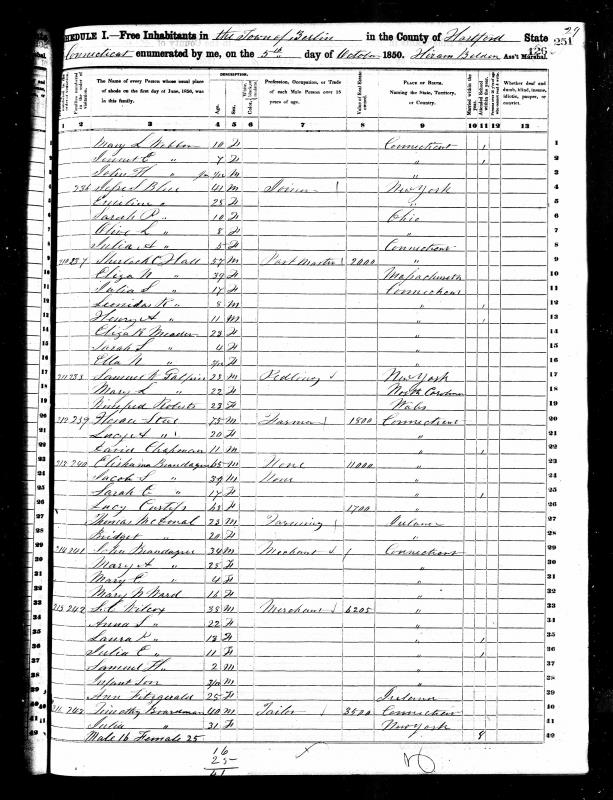 SCHEDULE I.—Free Inhabitants in the Town of Berlin in the County of Hartford State
Connecticut enumerated by me, on the 5th day of October 1850. Hiram Belden Ass't Marshal.
29
251
126
DESCRIPTION.
The Name of every Person whose usual place of abode on the first day of June, 1850, was in this family.
Age.
Sex.
Profession, Occupation, or Trade of each Male Person over 15 years of age.
Value of Real Estate owned.
PLACE OF BIRTH. Naming the State, Territory, or Country.
Married within the year.
Attended School within the year.
Whether deaf and dumb, blind, insane, idiotic, pauper, or convict.
1 2 3 4 5 6 7 8 9 10 11 12 13
1 Mary L 10 F Connecticut 1 1
2 E " 7 F " 1 2
3 John H " M " 3
4 236 Blue 41 M Joiner New York 4
5 Emeline " 25 F " 5
6 Sarah P " 10 F Ohio 6
7 Olive L " 8 F " 7
8 Julia A " 5 F Connecticut 8
9 210 237 Sherlock C Hall 57 M Post Master 2000 " 9
10 Eliza N " 39 F Massachusetts 10
11 Julia S " 17 F Connecticut 11
12 Leonidas R " 8 M " 1 12
13 Henry A " 11 M " 1 13
14 Eliza R 23 F " 14
15 Sarah S " 4 F " 15
16 Ella N " F " 16
17 211 238 Samuel N Galpin 23 M Pedling New York 17
18 Mary L " 22 F North Carolina 18
19 Winifred Roberts 23 F Wales 19
20 212 239 Horace 75 M Farmer 1800 Connecticut 20
21 Lucy A " 20 F " 21
22 David Chapman 11 M " 1 22
23 213 240 Elishama Brandagee 65 M None 11000 " 23
24 Jacob S " 39 M None " 24
25 Sarah C " 17 F " 1 25
26 Lucy Curtiss 48 F 1700 " 26
27 Thomas McDonal 23 M Farming Ireland 27
28 Bridget " 20 F " 28
29 214 241 John Brandagee 34 M Merchant Connecticut 29
30 Mary A " 25 F " 30
31 Mary E " 4 F " 31
32 Mary N Ward 16 F " 32
33 215 242 S.C. Wilcox 38 M Merchant 6205 " 33
34 Anna S " 22 F " 34
35 Laura P " 13 F " 1 35
36 Julia E " 11 F " 1 36
37 Samuel H " 2 M " 37
38 Infant Son M " 38
39 Ann Fitzgerald 25 F Ireland 39
40 243 Timothy Boardman 40 M Tailor 3500 Connecticut 40
41 Julia " 31 F New York 41
42 Male 16 Female 25 42
16
25
41